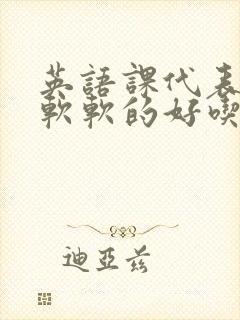 英語課代表
軟軟的好喫
迪亞茲